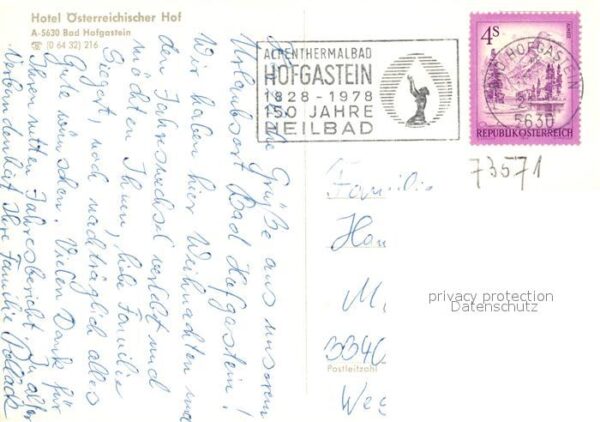 Hotel Österreichischer Hof
A-5630 Bad Hofgastein
☏ (0 64 32) 216
ALPENTHERMALBAD
HOFGASTEIN
1828 - 1978
150 JAHRE
HEILBAD
4S
REPUBLIK ÖSTERREICH
HOFGASTEIN
5630
73571
Grüße aus unserem
Urlaubsort Bad Hofgastein!
Wir haben hier Weihnachten und
den Jahreswechsel verlebt und
möchten Ihnen, liebe Familie
Siegert, noch nachträglich alles
Gute wünschen. Vielen Dank für
Ihren netten Jahresbericht. In alter
Verbundenheit Ihre Familie Pollack
Familie
Han
M
3340
Postleitzahl
We
privacy protection
Datenschutz